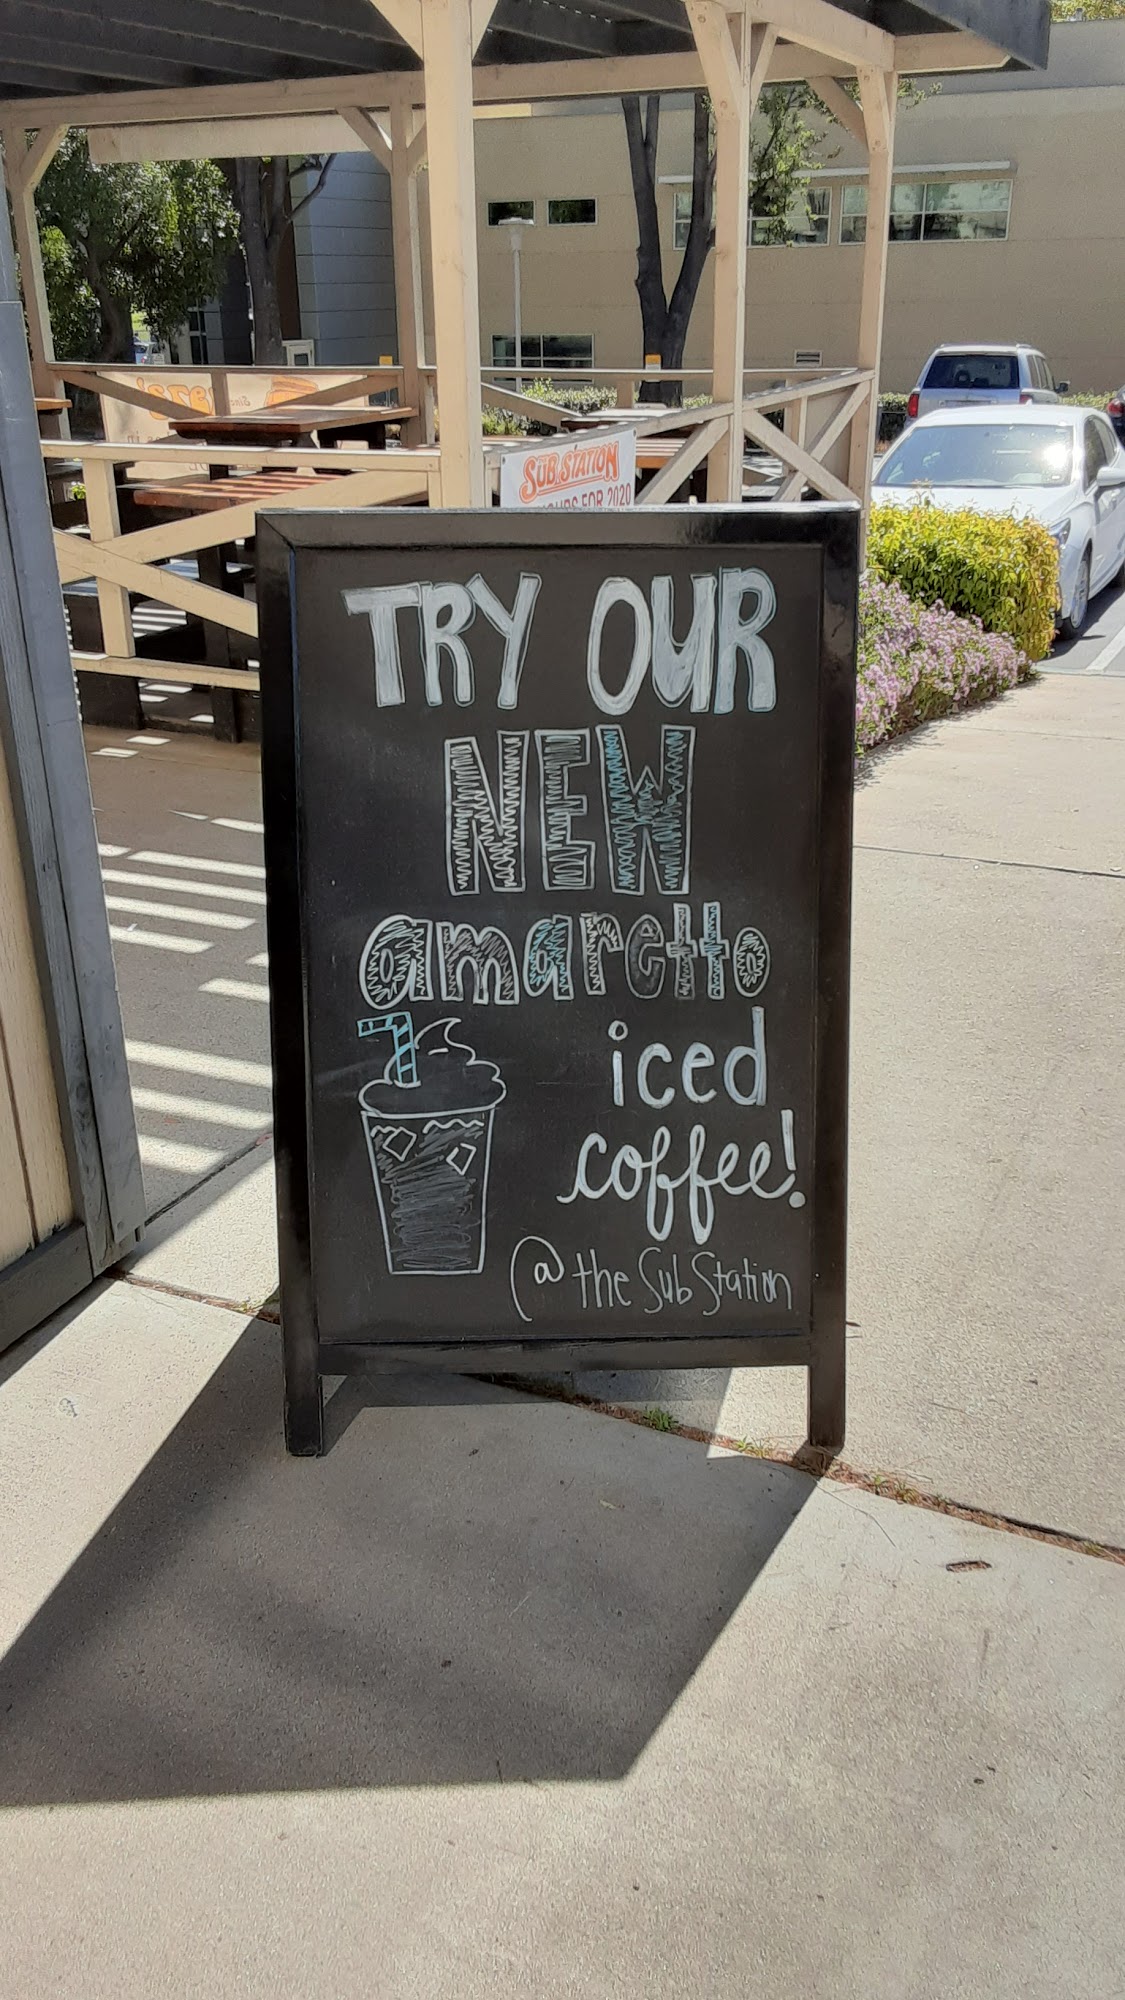 SUB STATION
HOURS FOR 2020
TRY OUR
NEW
amaretto
iced
coffee!
@ the Sub Station